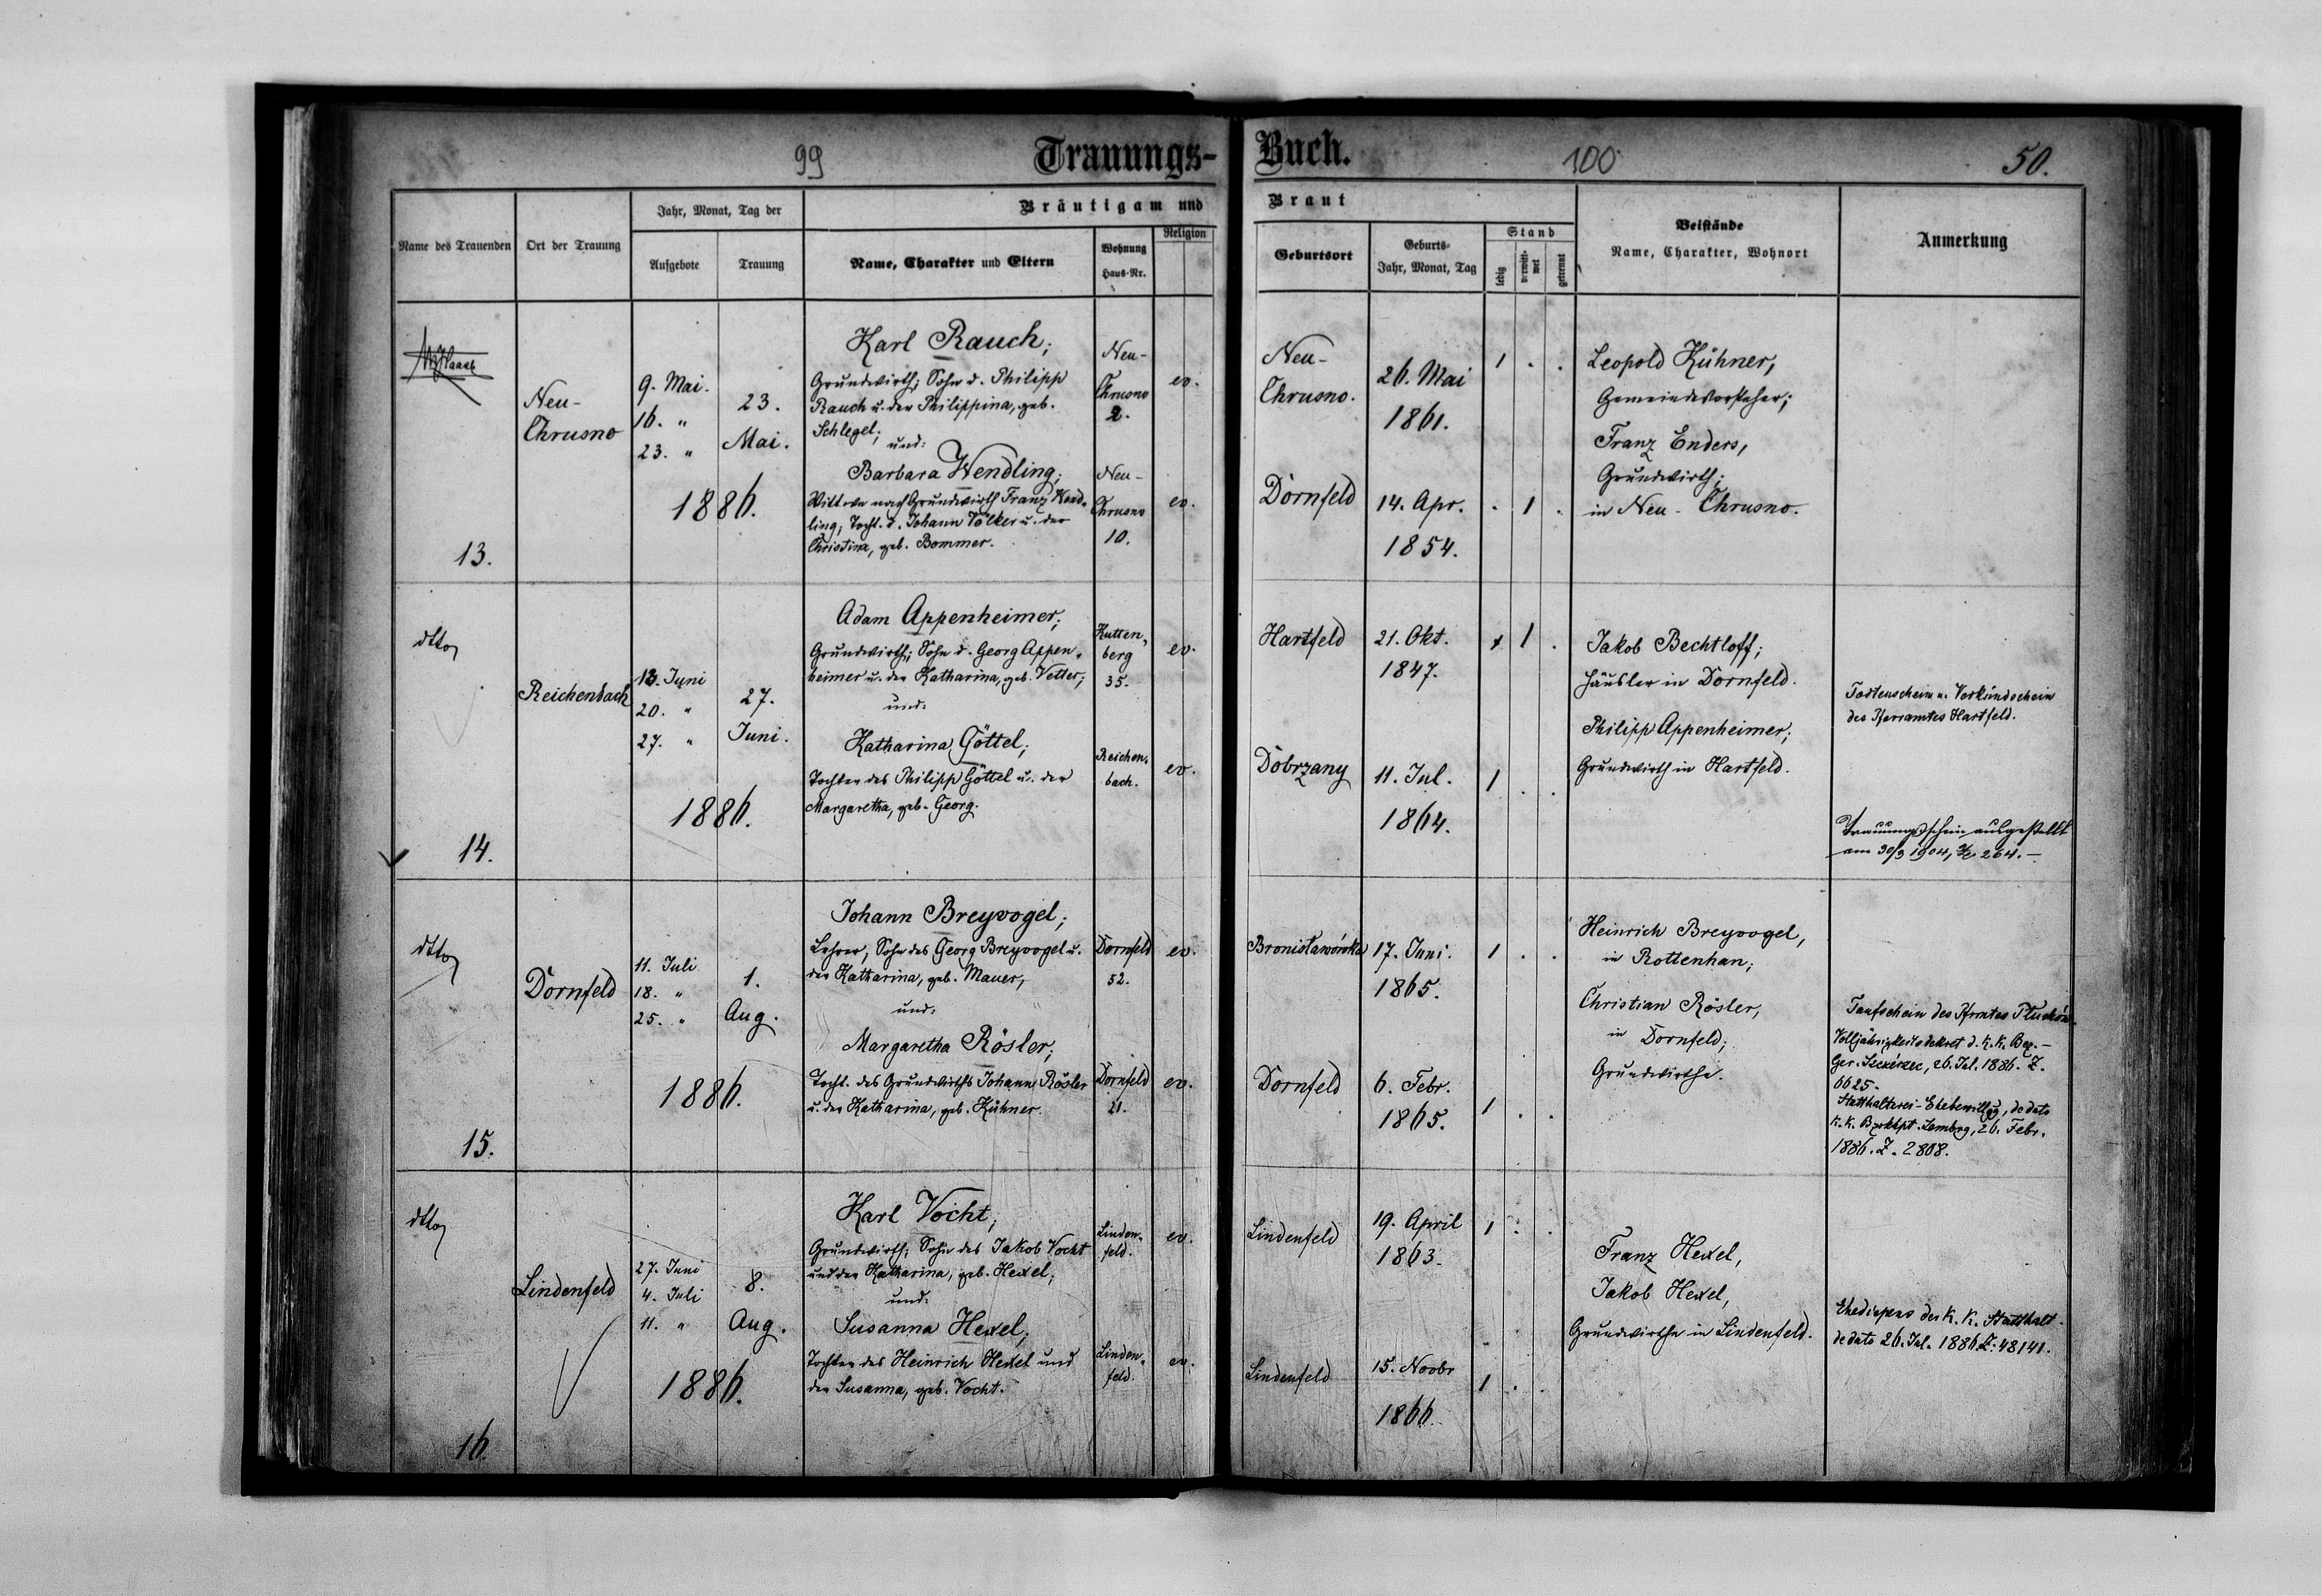 99
Trauungs-
Buch.
100
50.
Name des Trauenden
Ort der Trauung
Jahr, Monat, Tag der
Aufgebote
Trauung
Bräutigam und
Name, Charakter und Eltern
Wohnung
Haus-Nr.
Religion
Braut
Geburtsort
Geburts-
Jahr, Monat, Tag
Stand
ledig
verwitt-
wet
getrennt
Beistände
Name, Charakter, Wohnort
Anmerkung
13.
Neu-
Chrusno
9. Mai.
16. "
23. "
23.
Mai.
1886.
Karl Rauch;
Grundwirth; Sohn d. Philipp
Rauch u. der Philippina, geb.
Schlegel;
und:
Barbara Wendling;
Wittwe nach Grundwirth Franz Wend-
ling; Tocht. d. Johann Völker u. der
Christina, geb. Bommer.
Neu-
Chrusno
2.
ev.
Neu-
Chrusno
10.
ev.
Neu-
Chrusno.
26. Mai
1861.
1 . .
Dornfeld
14. Apr.
1854.
. 1 .
Leopold Kühner,
Gemeindevorsteher;
Franz Enders,
Grundwirth;
in Neu-Chrusno.
dtto
14.
Reichenbach
13. Juni
20. "
27. "
27.
Juni.
1886.
Adam Appenheimer;
Grundwirth; Sohn d. Georg Appen-
heimer u. der Katharina, geb. Vetter;
und:
Katharina Göttel;
Tochter des Philipp Göttel u. der
Margaretha, geb. Georg.
Kutten-
berg
35.
ev.
Reichen-
bach.
ev.
Hartfeld
21. Okt.
1847.
1 .
Dobrzany
11. Jul.
1864.
1 . .
Jakob Bechtloff;
Häusler in Dornfeld.
Philipp Appenheimer;
Grundwirth in Hartfeld.
Todtenschein u. Verkündschein
des Pfarramtes Hartfeld.
Trauungsschein ausgestellt
am 30/3 1904, 264.-
dtto
15.
Dornfeld
11. Juli
18. "
25. "
1.
Aug.
1886.
Johann Breyvogel;
Lehrer, Sohn des Georg Breyvogel u.
der Katharina, geb. Mauer,
und:
Margaretha Rösler;
Tocht. des Grundwirths Johann Rösler
u. der Katharina, geb. Kühner.
Dornfeld
52.
ev.
Dornfeld
21.
ev.
Bronisławówka
17. Juni.
1865.
1 . .
Dornfeld
6. Febr.
1865.
1 . .
Heinrich Breyvogel,
in Rottenhan;
Christian Rösler,
in Dornfeld;
Grundwirthe.
Taufschein des Pframtes
Volljährigkeitsdekret d. k. k. Bez.-
Ger. Szczerzec, 26. Jul. 1886. Z.
6625.
Statthalterei-Ehebewillgg, de dato
k. k. Bzrkhpt. Lembrg, 26. Febr.
1886. Z. 2808.
dtto
16.
Lindenfeld
27. Juni
4. Juli
11. "
8.
Aug.
1886.
Karl Vocht;
Grundwirth; Sohn des Jakob Vocht
und der Katharina, geb. Hexel;
und:
Susanna Hexel;
Tochter des Heinrich Hexel und
der Susanna, geb. Vocht.
Linden-
feld.
ev.
Linden-
feld.
ev.
Lindenfeld
19. April
1863.
1 . .
Lindenfeld
15. Novbr
1866.
1 . .
Franz Hexel,
Jakob Hexel,
Grundwirthe in Lindenfeld.
Ehedispens der k. k. Statthalt.
de dato 26. Jul. 1886 Z: 48141.